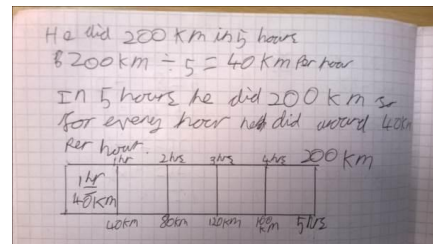 He did 200 km in 5 hours
200km ÷ 5 = 40 km per hour
In 5 hours he did 200 km so
for every hour he did around 40km
per hour.
1hr 2hrs 3hrs 4hrs 200 km
1hr
40km
40km 80km 120km 160km 5hrs